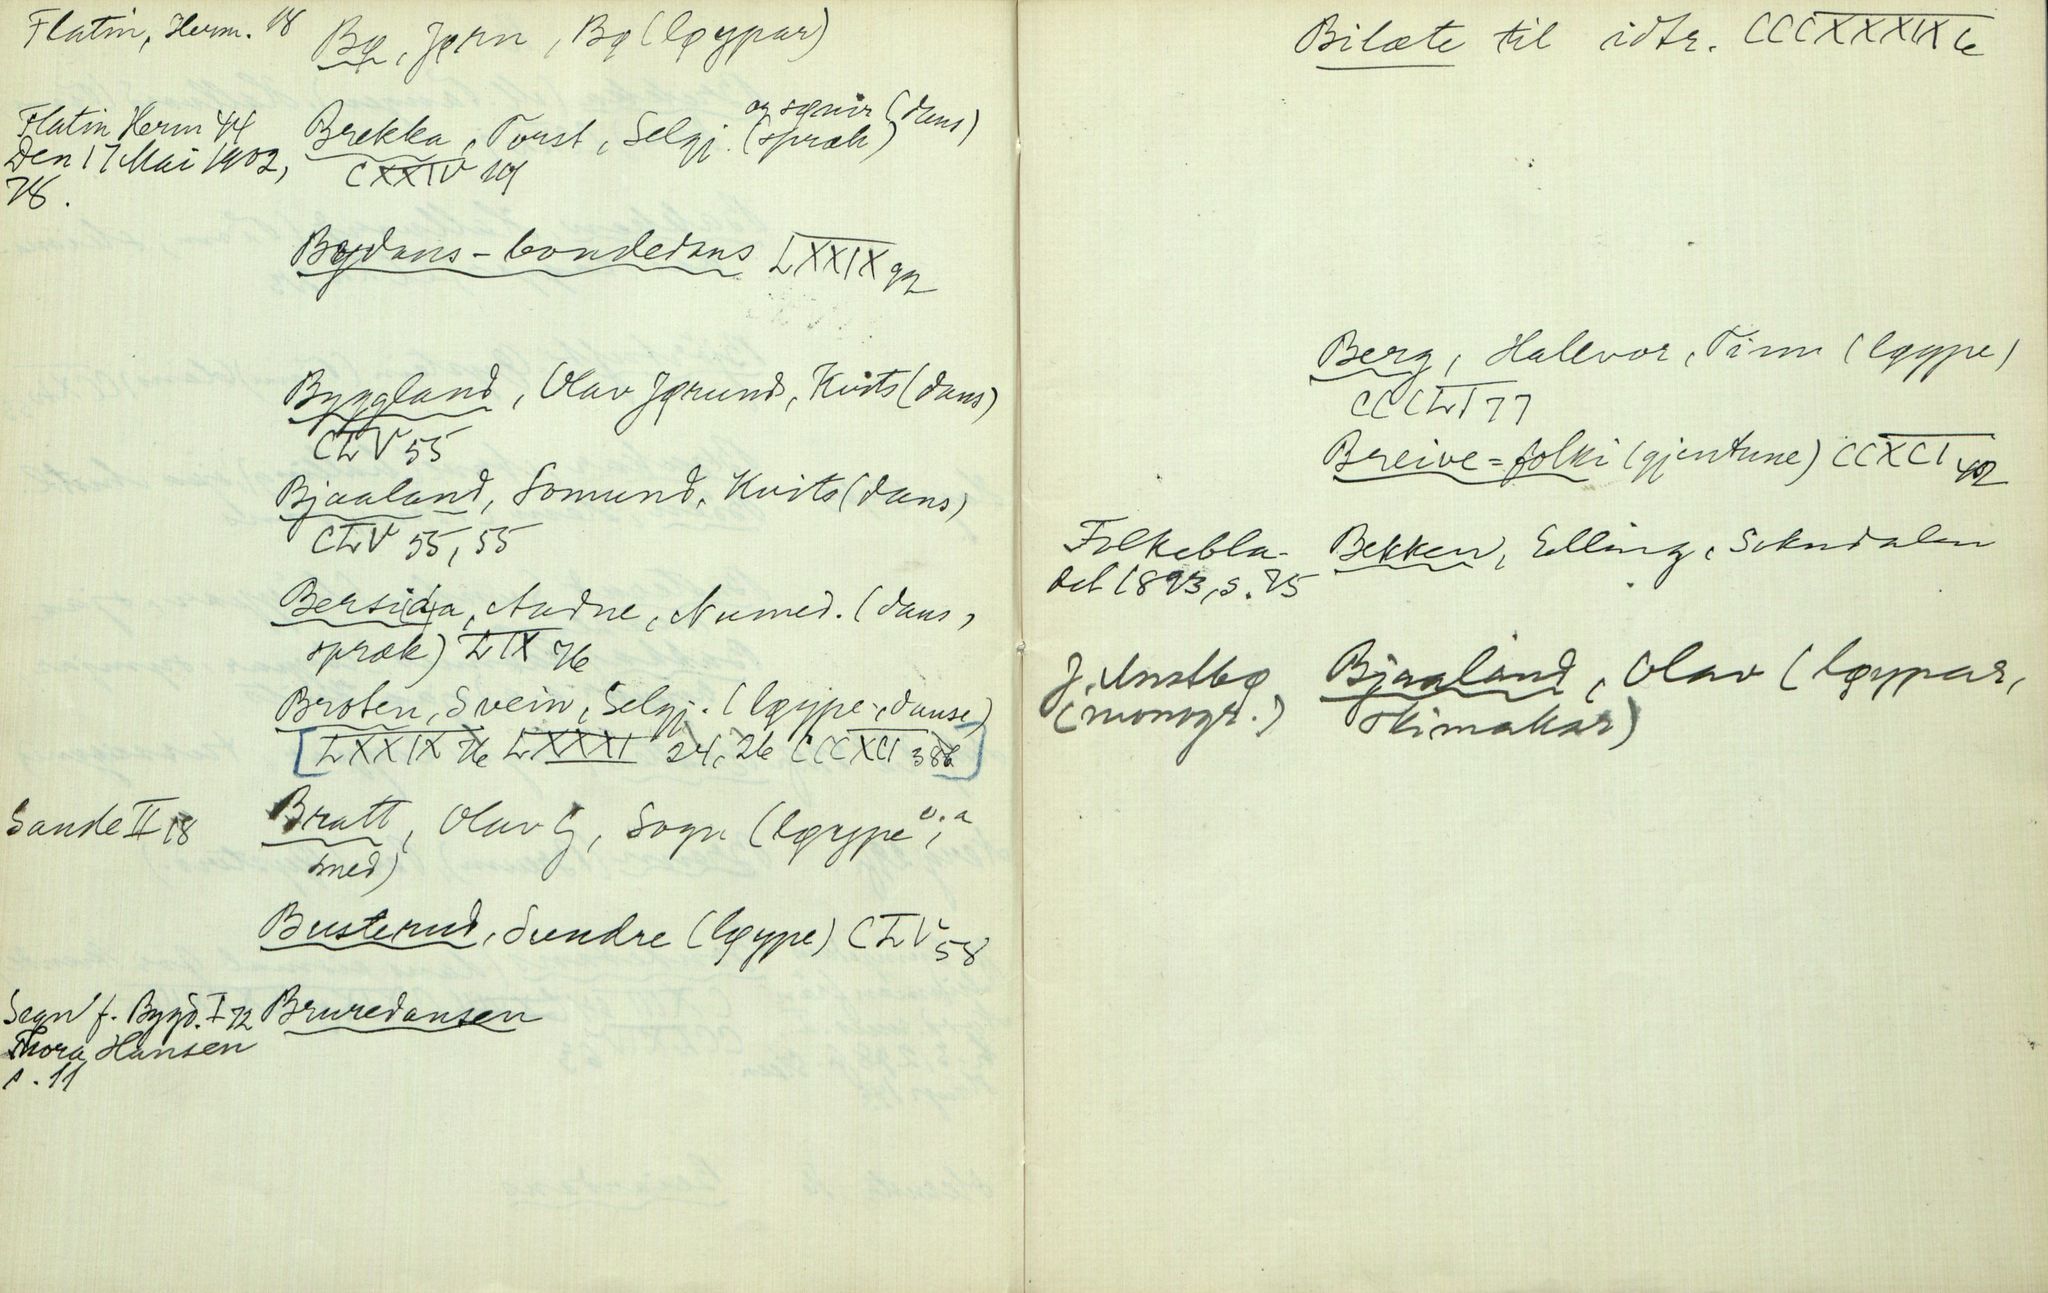 Flatin, Herm. 18 Bø, Jørn, Bø (løypar)
og søner (dans)
Flatin Herm 44 Brekka, Torst, Selgj. (spræk)
Den 17 Mai 1902, CXXIV 101
78.
Bydans-bondedans LXXIX 92
Byggland, Olav Jørund, Kvits (dans)
CLV 55
Bjaaland, Somund, Kvits (dans)
CLV 55, 55
Bersida, Audne, Numed. (dans,
spræk) LIX 76
Broten, Svein, Selgj. (løype-, danse)
[LXXIX 76 LXXXI 24, 26 CCCXCI 386]
Sande II 18 Bratt, Olav G, Sogn (løype o. a
smed)
Busterud, Sundre (løype) CLV 58
Segn f. Bygd. I 72 Bruredansen
Thora Hansen
s. 11
Bilæte til idtr. CCCXXXIX 6
Berg, Halvor, Tinn (løype)
CCCLI 77
Breive=folki (gjentune) CCXCI 42
Folkebla- Bekken, Elling, Sokndalen
det 1893, s. 75
Bjaaland, Olav (løypar,
(monogr.) skimakar)